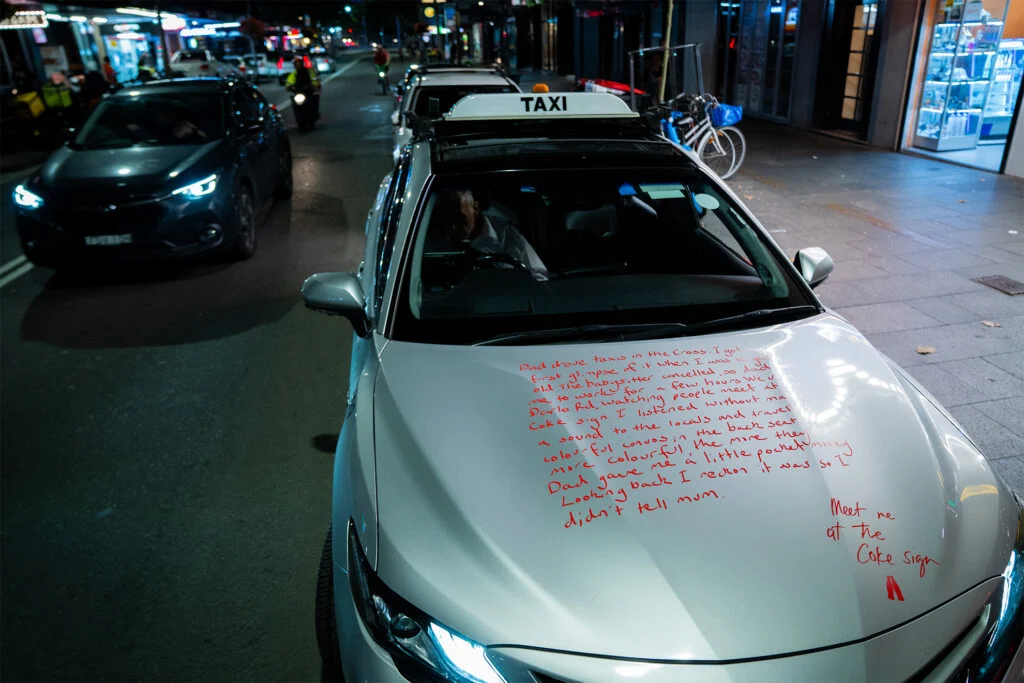 TAXI
Dad drove taxis in the Cross. I got
first glimpse of it when I was
old. The babysitter cancelled, so dad
me to work for a few hours. We
Darlo Rd, watching people meet at
Coke sign I listened without
a sound to the locals and
colourful convos in the back seat
more colourful the more they
Dad gave me a little pocket money
Looking back I reckon it was so I
didn't tell mum.
Meet me
at the
Coke sign